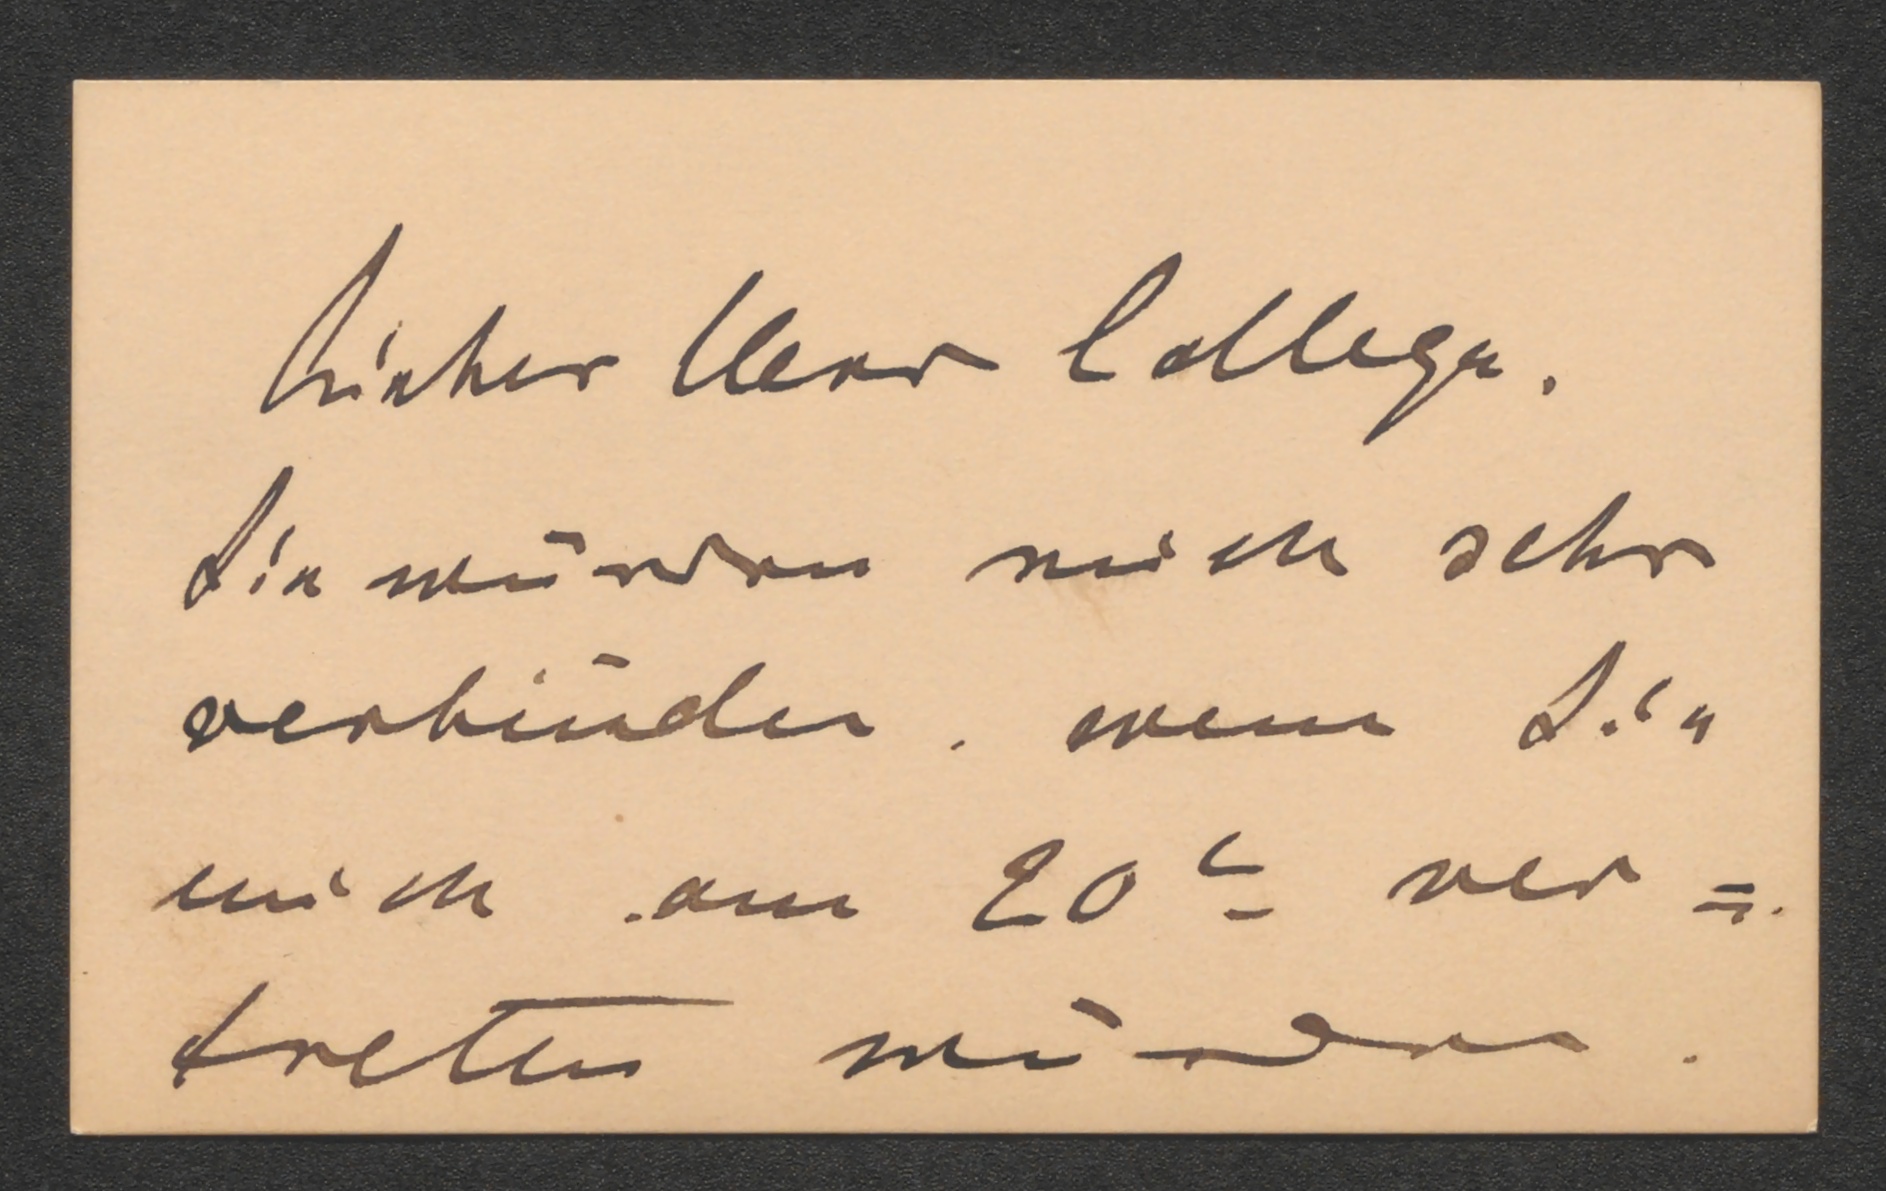 Lieber Herr College.
Sie würden mich sehr
verbinden. wenn Sie
mich am 20t ver=
treten würden.